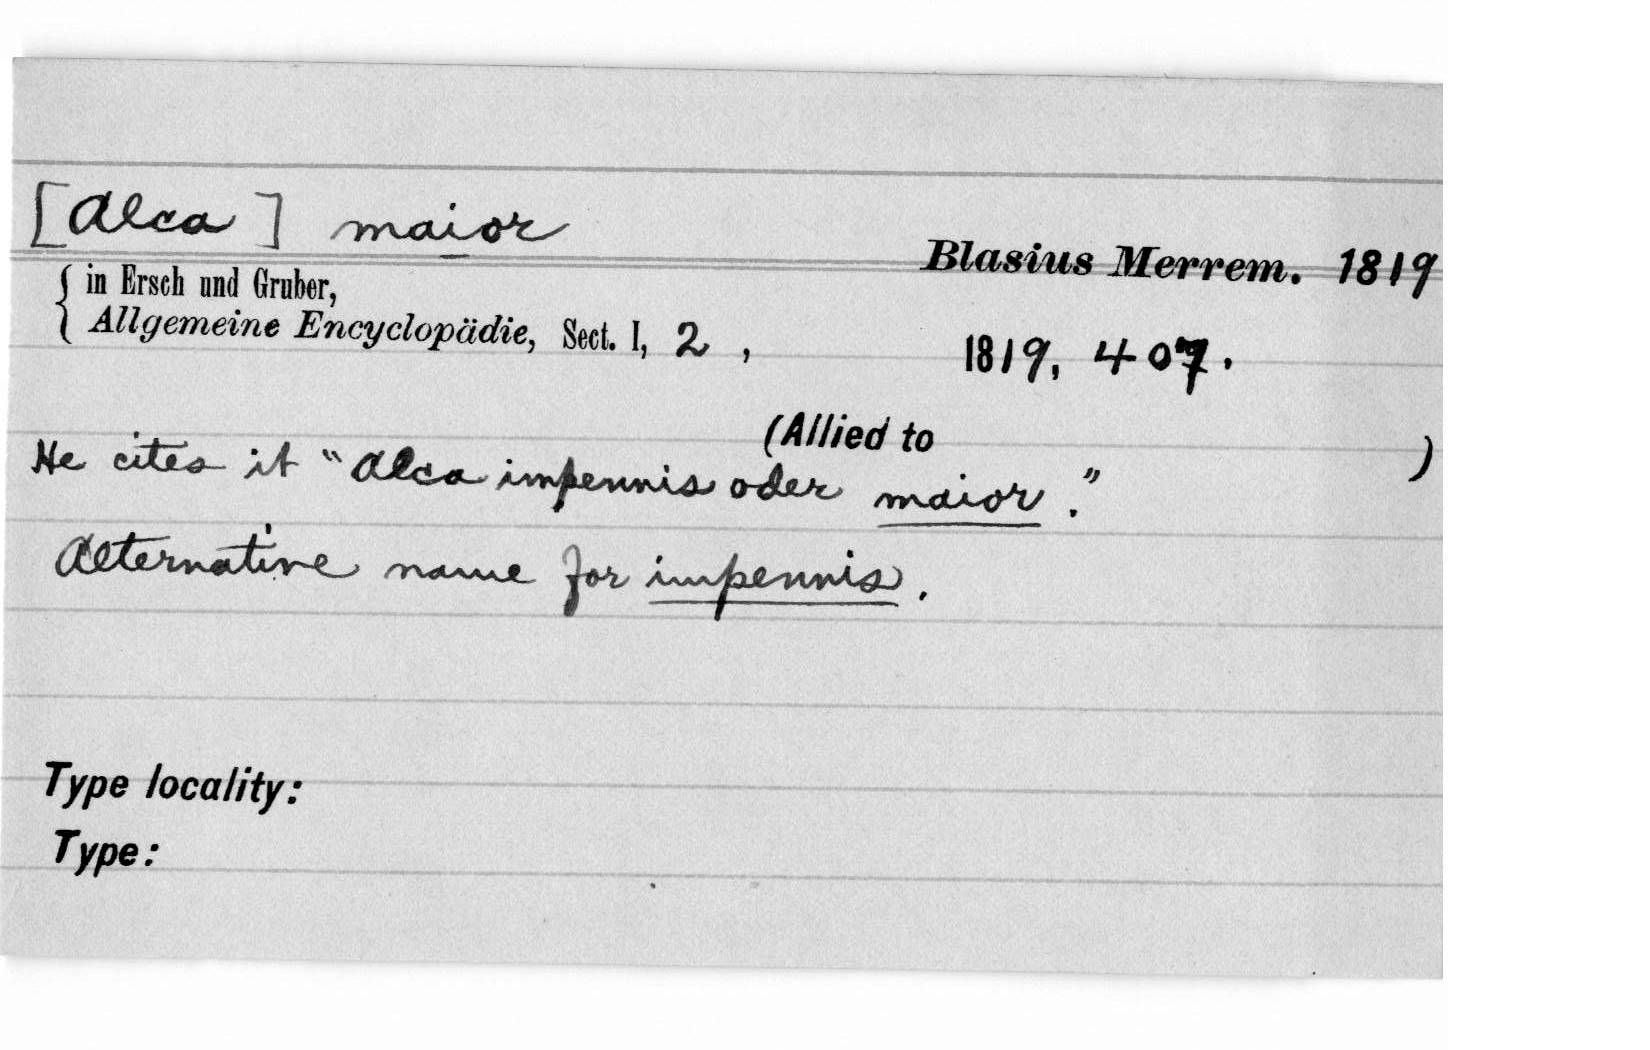 [Alca] maior
Blasius Merrem. 1819
{ in Ersch und Gruber,
Allgemeine Encyclopädie, Sect. I, 2, 1819, 407.
(Allied to )
He cites it "Alca impennis oder maior."
Alternative name for impennis.
Type locality:
Type: